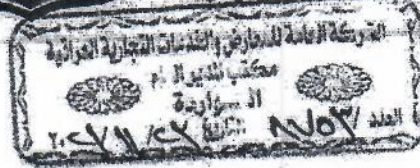 الشركة العامة للمعارض والخدمات التجارية العراقية
مكتب المدير العام
الـــواردة
العدد / ٨٧٥٣ التاريخ ٢٠٢٢/١١/٢٢